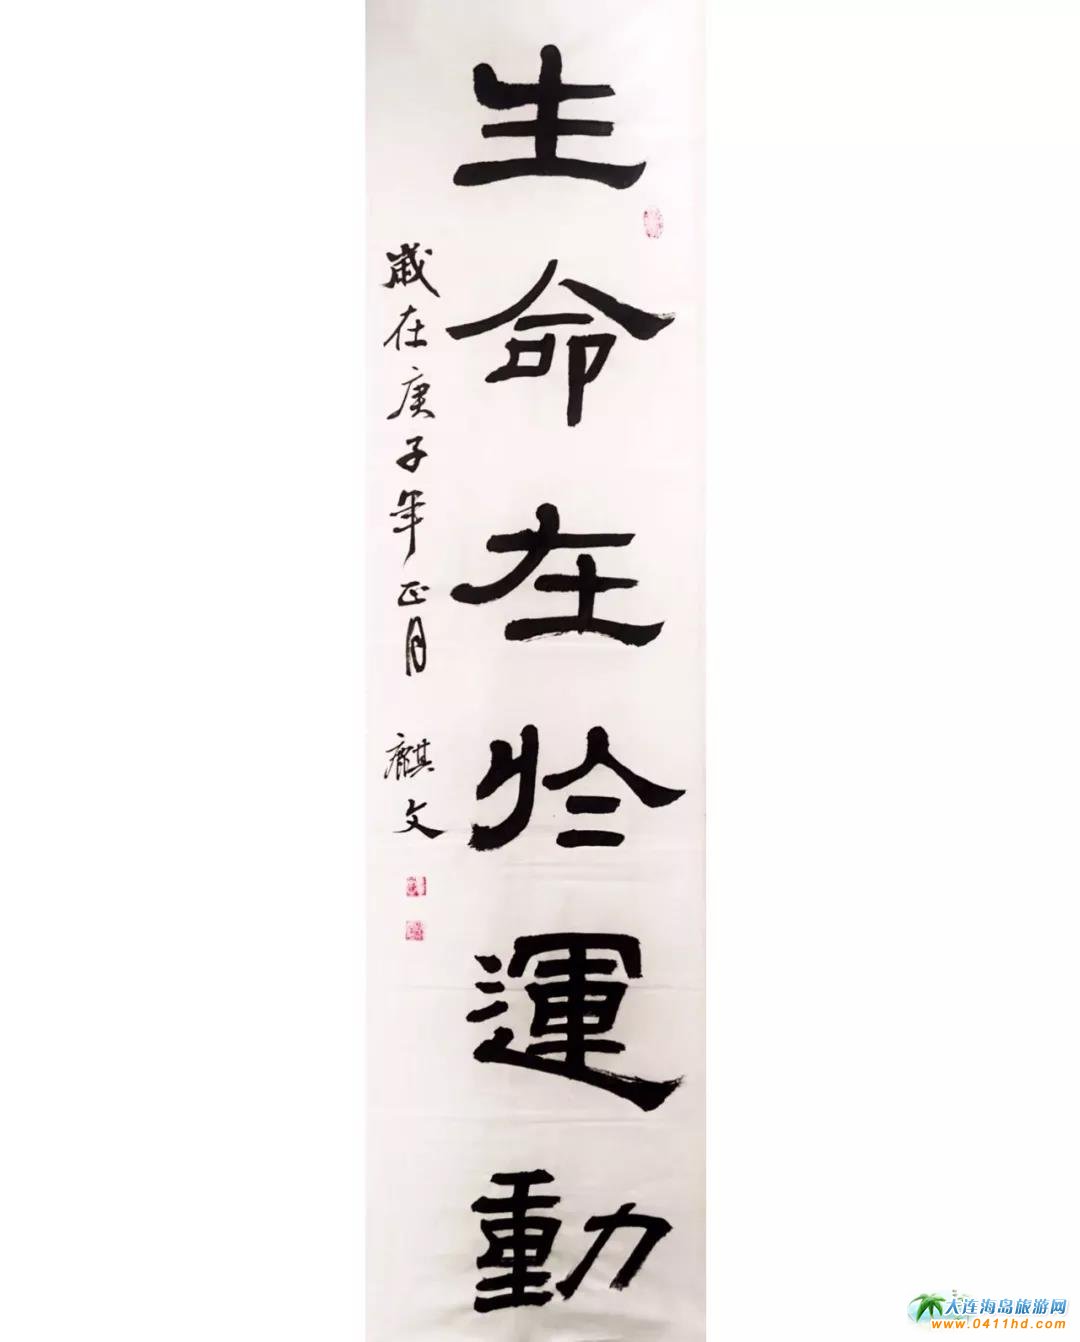 生命在於運動
歲在庚子年正月 麒文
大连海岛旅游网
www.0411hd.com